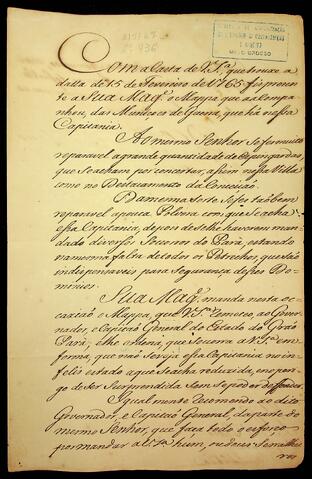 Com a Carta de V. S.ª que trouxe a
datta de 15 de Fevereiro de 1765 fis prezen
te a Sua Mag.e o Mappa, que a acompa
nhou, das Muniçoes de Guerra, que há nessa
Capitania.
Ao mesmo Senhor se fes muito
reparavel a grande quantidade de Espingardas,
que se acham por concertar, assim nessa Villa
como no Destacamento da Conceição.
Da mesma sorte se fes taõbem
reparavel a pouca Polvora com que se acha
essa Capitania, depois de se lhe haverem man
dado diversos Socorros do Pará, estando
na mesma falta de todos os Petrechos, que são
indispensaveis para Segurança desses Do
minios.
Sua Mag.e manda nesta oc
caziaõ o Mappa, que V. S.ª remeteo, ao Gover
nador, e Capitaõ General do Estado do Graõ
Pará, e lhe ordena, que socorra a V. S.ª em
forma, que naõ seja essa Capitania no in
felis estado a que se acha reduzida, e no peri
go de ser Surprendida sem se poder defender.
Igualmente recomendo ao dito
Governador, e Capitaõ General, da parte do
mesmo Senhor, que faça todo o esforço
por mandar a V. S.ª hum, ou dous